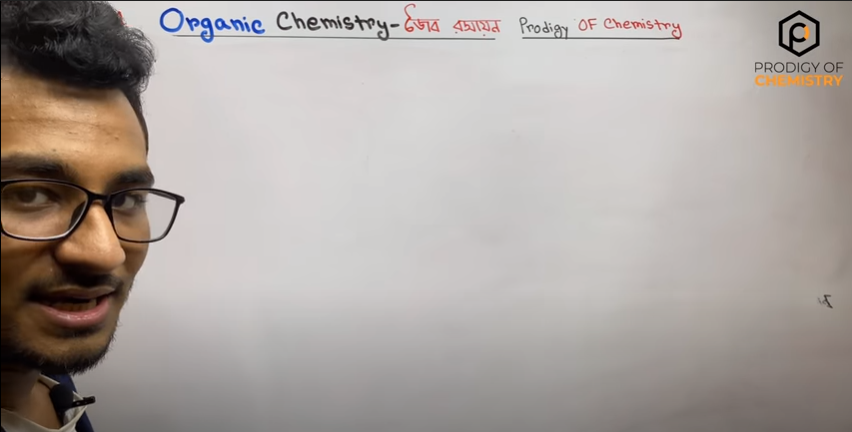 Organic Chemistry-জৈব রসায়ন Prodigy OF Chemistry
PRODIGY OF
CHEMISTRY